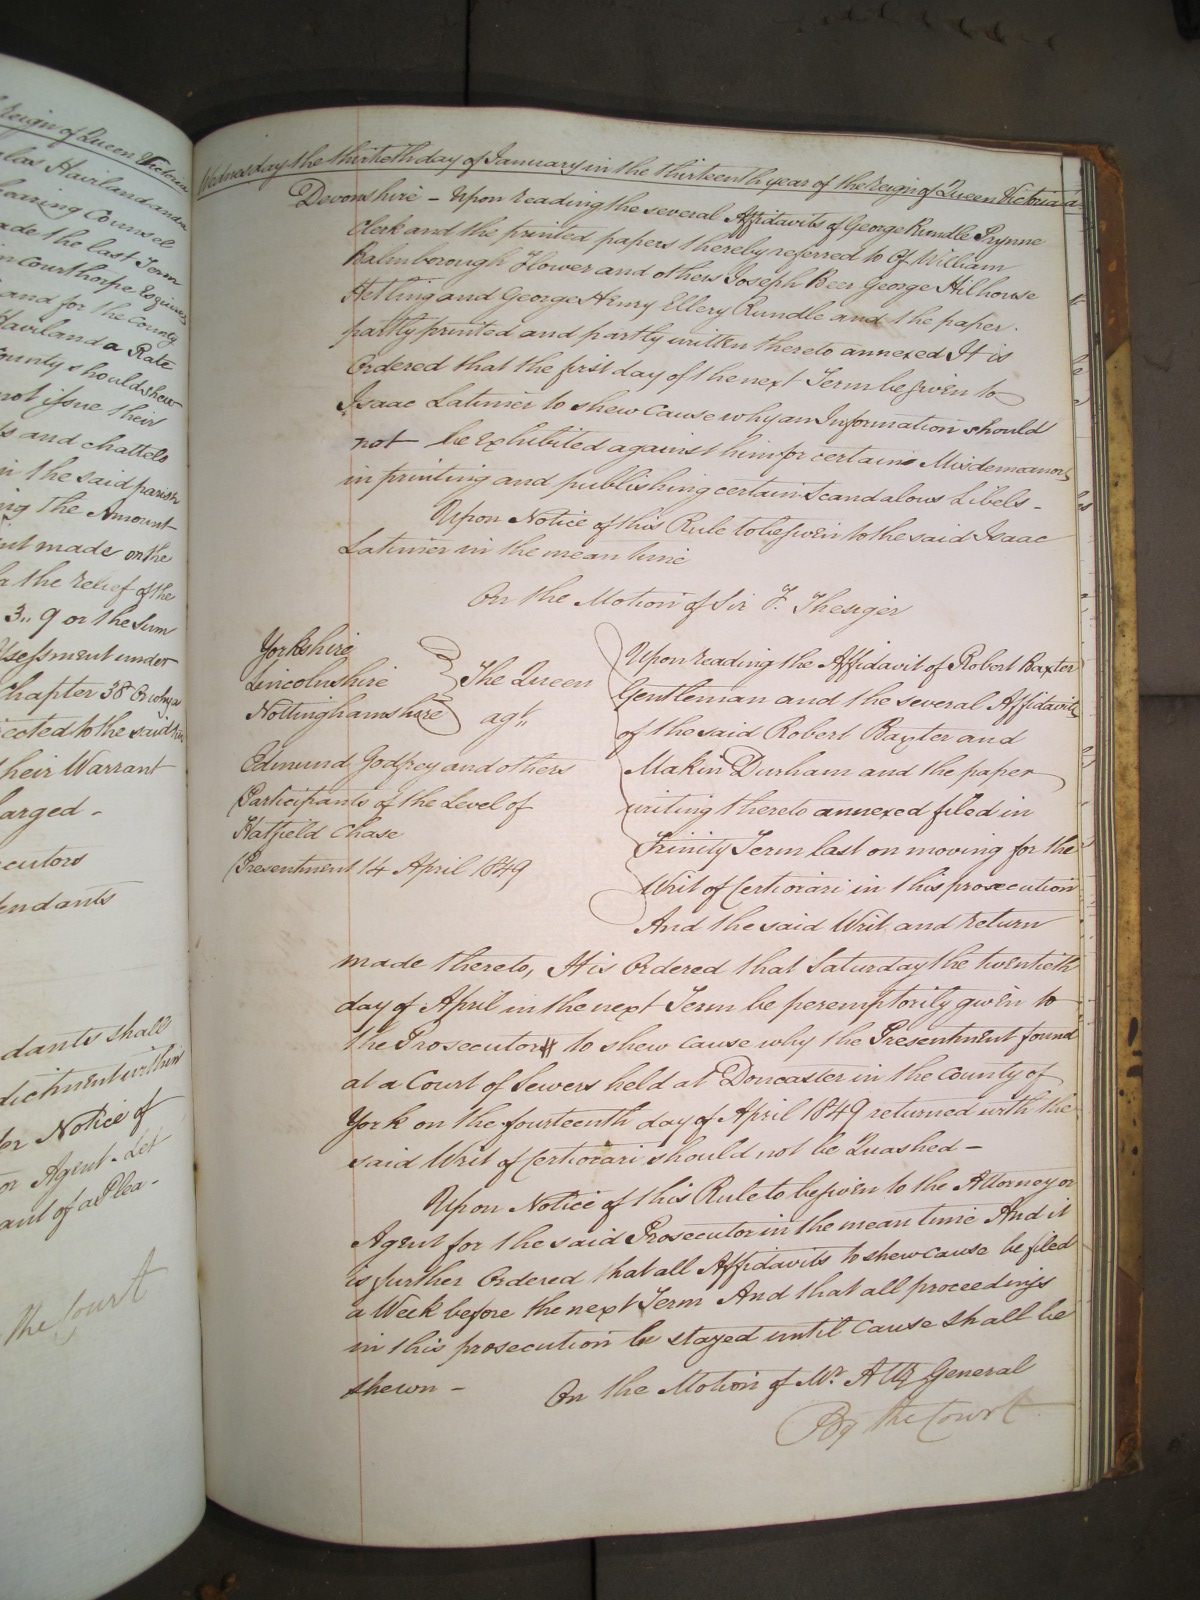 Reign of Queen Victoria
Haviland and
hearing Counsel
made the last Term
Courthope Esquires
and for the County
Haviland a Rate
County should shew
not issue their
and chattels
in the said parish
the Amount
made on the
the relief of the
3,, 9 or the Sum
Assessment under
Chapter 38 Or
directed to the said
their Warrant
arged -
ecutors
endants
dants shall
dictment within
Notice of
or Agent - Let
ant of a Plea -
the Court
Wednesday the thirtieth day of January in the thirteenth year of the reign of Queen Victoria
Devonshire - Upon reading the several Affidavits of George Rundle Prynne
Clerk and the printed papers thereby referred to Of William
Balmborough Flower and others Joseph Beer George Hilhouse
Hetling and George Henry Ellery Rundle and the paper
partly printed and partly written thereto annexed It is
Ordered that the first day of the next Term be given to
Isaac Latimer to shew cause why an Information should
not be exhibited against him for certain Misdemeanors
in printing and publishing certain Scandalous Libels -
Upon Notice of this Rule to be given to the said Isaac
Latimer in the mean time
On the Motion of Sir F. Thesiger
Yorkshire
Lincolnshire } The Queen
Nottinghamshire agt.
Edmund Godfrey and others
Participants of the Level of
Hatfield Chase
Presentment 14 April 1849
Upon reading the Affidavit of Robert Baxter
Gentleman and the several Affidavits
of the said Robert Baxter and
Makin Durham and the paper
writing thereto annexed filed in
Trinity Term last on moving for the
Writ of Certiorari in this prosecution
And the said Writ and return
made thereto, It is Ordered that Saturday the twentieth
day of April in the next Term be peremptorily given to
the Prosecutor to shew cause why the Presentment found
at a Court of Sewers held at Doncaster in the County of
York on the fourteenth day of April 1849 returned with the
said Writ of Certiorari should not be Quashed -
Upon Notice of this Rule to be given to the Attorney or
Agent for the said Prosecutor in the mean time And it
is further Ordered that all Affidavits to shew cause be filed
a Week before the next Term And that all proceedings
in this prosecution be stayed until cause shall be
shewn -
On the Motion of Mr. Atty General
By the Court